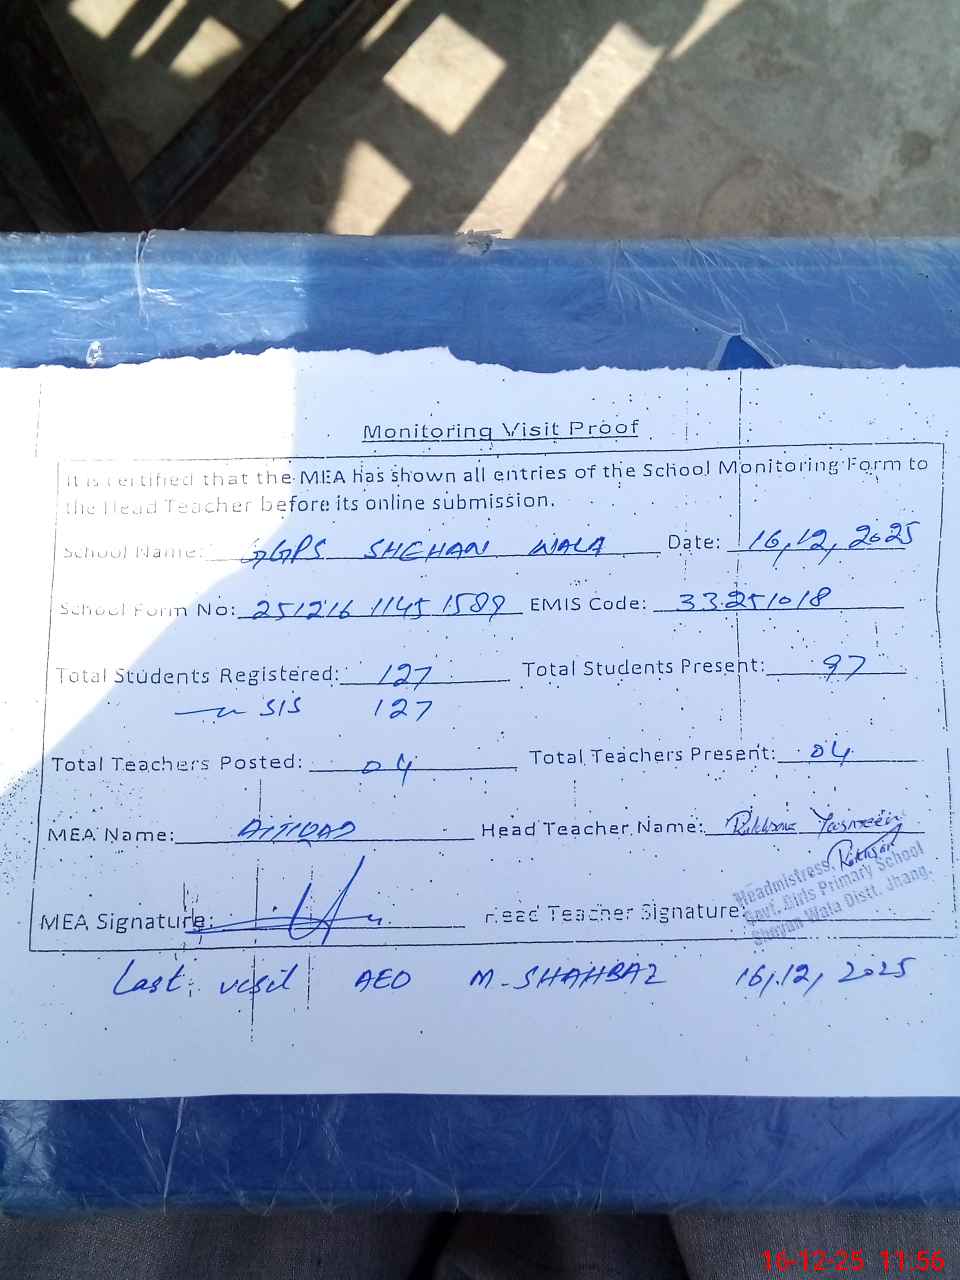 Monitoring Visit Proof
It is certified that the MEA has shown all entries of the School Monitoring Form to
the Head Teacher before its online submission.
School Name: GGPS SHEHAN WALA Date: 16,12,2025
School Form No: 251216 1145 1589 EMIS Code: 33251018
Total Students Registered: 127 Total Students Present: 97
SIS 127
Total Teachers Posted: 04 Total Teachers Present: 04
MEA Name: Head Teacher Name: Rukhsana Yasmeen
MEA Signature: Head Teacher Signature:
Headmistress
Govt. Girls Primary School
Wala Distt. Jhang.
Last visit AEO M-SHAHBAZ 16,12,2025
16-12-25 11:56